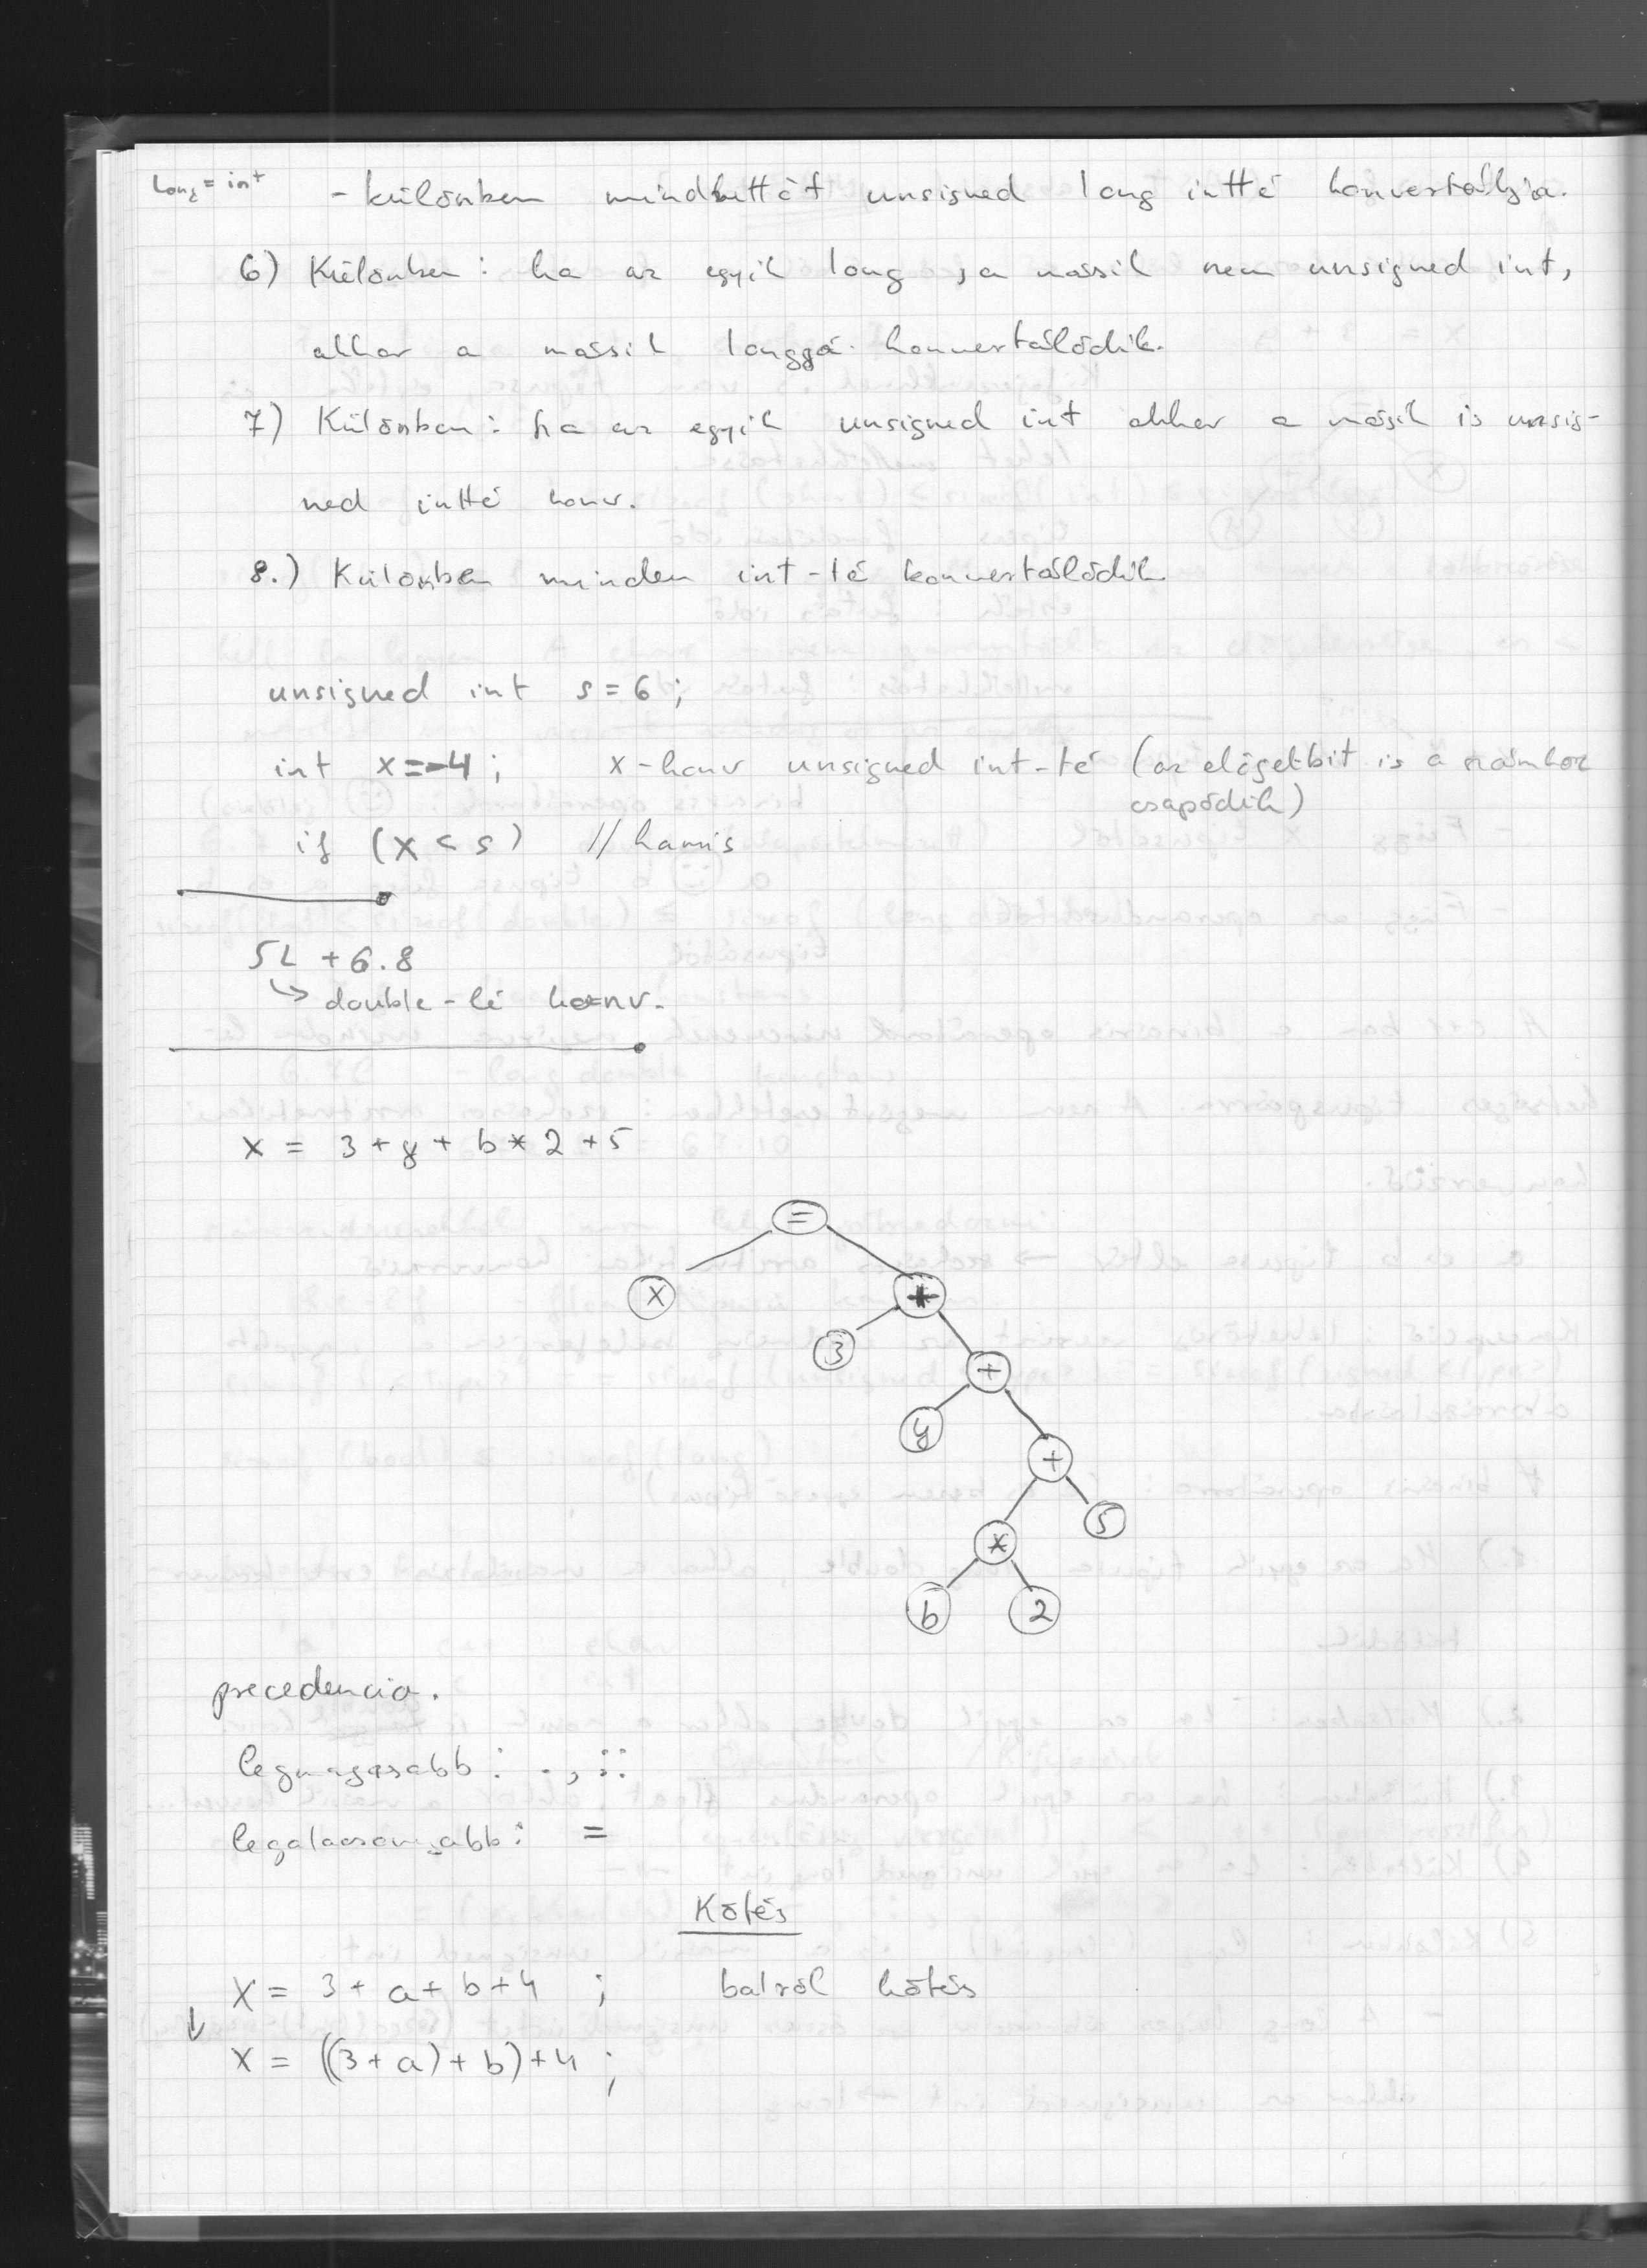 long = int
- különben mindkettőt unsigned long intté konvertálja.
6) Különben: ha az egyik long, a másik nem unsigned int,
akkor a másik longgá konvertálódik.
7) Különben: ha az egyik unsigned int akkor a másik is unsig-
ned intté konv.
8.) Különben minden int-té konvertálódik.
unsigned int s=6;
int x=-4; x-konv unsigned int-té (az előjelbit is a számhoz
csapódik)
if (x < s) // hamis
5L + 6.8
↳ double-lé konv.
x = 3 + y + b * 2 + 5
=
x +
3 +
y +
* 5
b 2
precedencia.
legmagasabb: ., ::
legalacsonyabb: =
Kötés
x = 3 + a + b + 4 ; balról kötés
↓
x = ((3 + a) + b) + 4 ;